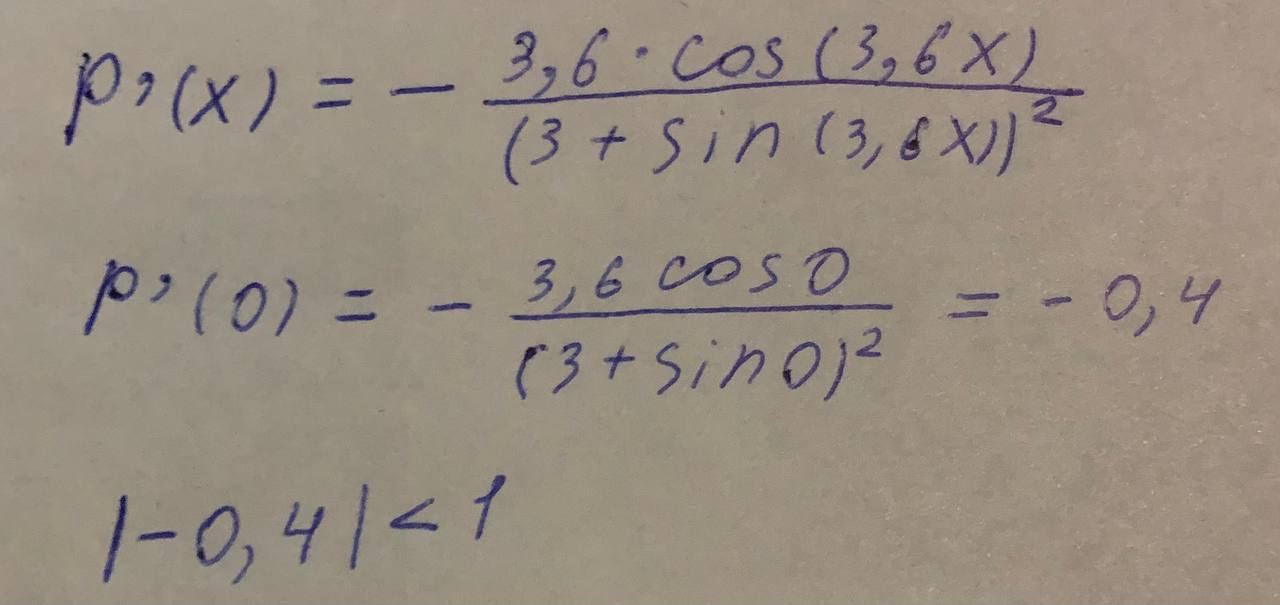 p'(x) = - 3,6 · cos(3,6x) / (3 + sin(3,6x))²
p'(0) = - 3,6 cos0 / (3 + sin0)² = - 0,4
|-0,4| < 1